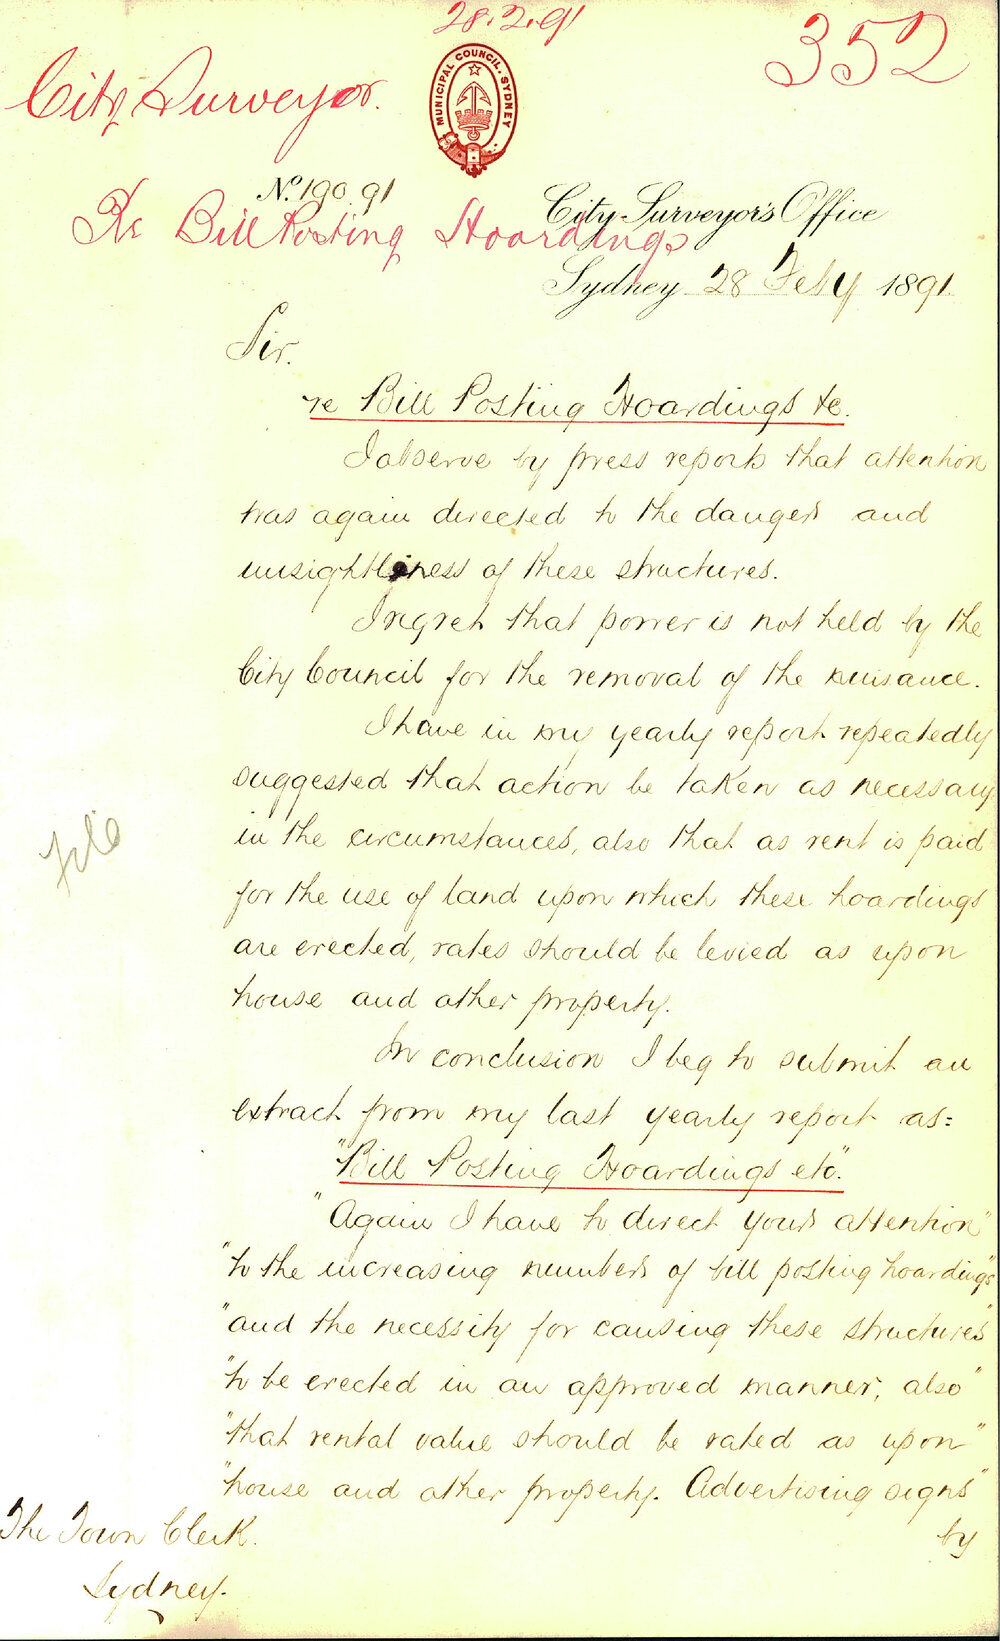 28.2.91
352
City Surveyor.
MUNICIPAL COUNCIL. SYDNEY
No. 190.91
Re Bill Posting Hoardings
City Surveyor's Office
Sydney 28 Feby 1891
Sir.
re Bill Posting Hoardings &c.
I observe by press reports that attention
was again directed to the dangers and
unsightliness of these structures.
I regret that power is not held by the
City Council for the removal of the nuisance.
I have in my yearly report repeatedly
suggested that action be taken as necessary
in the circumstances, also that as rent is paid
for the use of land upon which these hoardings
are erected, rates should be levied as upon
house and other property.
In conclusion I beg to submit an
extract from my last yearly report as:
"Bill Posting Hoardings etc."
"Again I have to direct your attention"
"to the increasing numbers of bill posting hoardings"
"and the necessity for causing these structures"
"to be erected in an approved manner, also"
"that rental value should be rated as upon"
"house and other property. Advertising signs"
by
The Town Clerk.
Sydney.
File